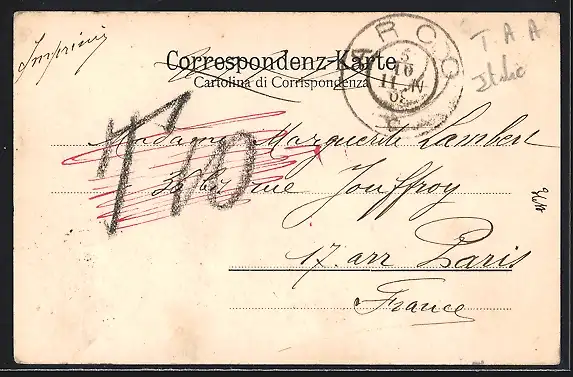 Imprimé
Correspondenz-Karte
Cartolina di Corrispondenza
ARCO
5
10
11-V
09
T A A
Italie
T 10
Madame Marguerite Lambert
36 bis rue Jouffroy
17. arr Paris
France